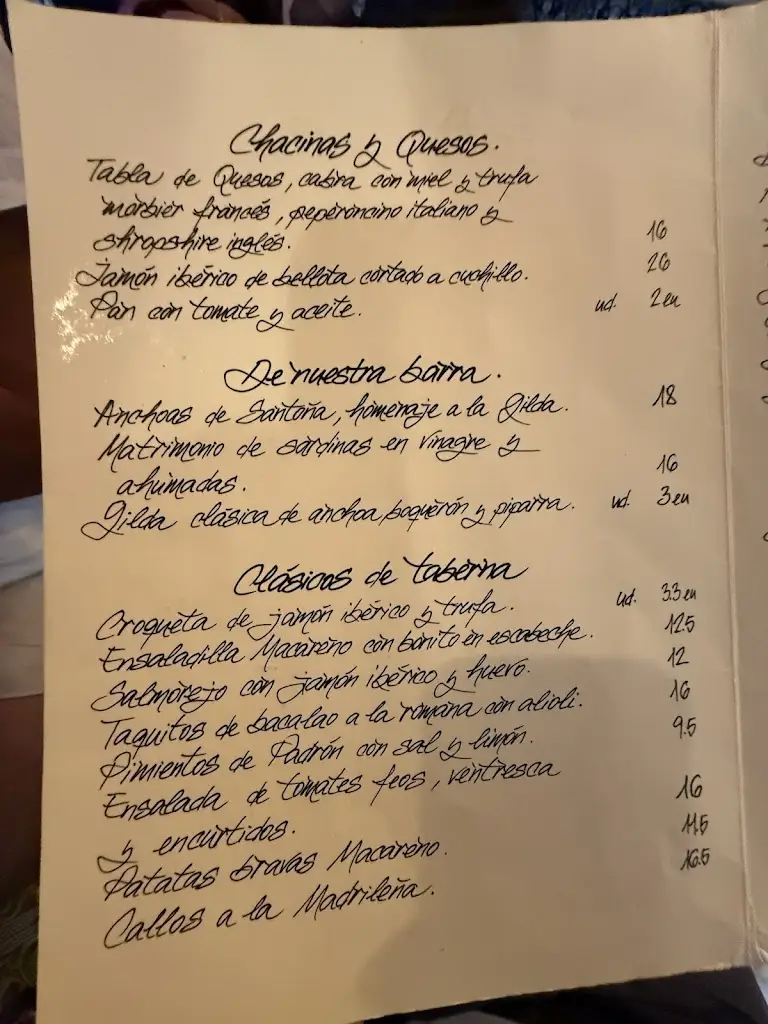 Chacinas y Quesos.
Tabla de Quesos, cabra con miel y trufa
morbier francés, peperoncino italiano y
shropshire inglés. 16
Jamón ibérico de bellota cortado a cuchillo. 26
Pan con tomate y aceite. ud. 2 eu
De nuestra barra.
Anchoas de Santoña, homenaje a la Gilda. 18
Matrimonio de sardinas en vinagre y
ahumadas. 16
Gilda clásica de anchoa, boquerón y piparra. ud. 3 eu
Clásicos de taberna
Croqueta de jamón ibérico y trufa. ud. 3.3 eu
Ensaladilla Macareno con bonito en escabeche. 12.5
Salmorejo con jamón ibérico y huevo. 12
Taquitos de bacalao a la romana con alioli. 16
Pimientos de Padrón con sal y limón. 9.5
Ensalada de tomates feos, ventresca
y encurtidos. 16
Patatas bravas Macareno. 11.5
Callos a la Madrileña. 16.5